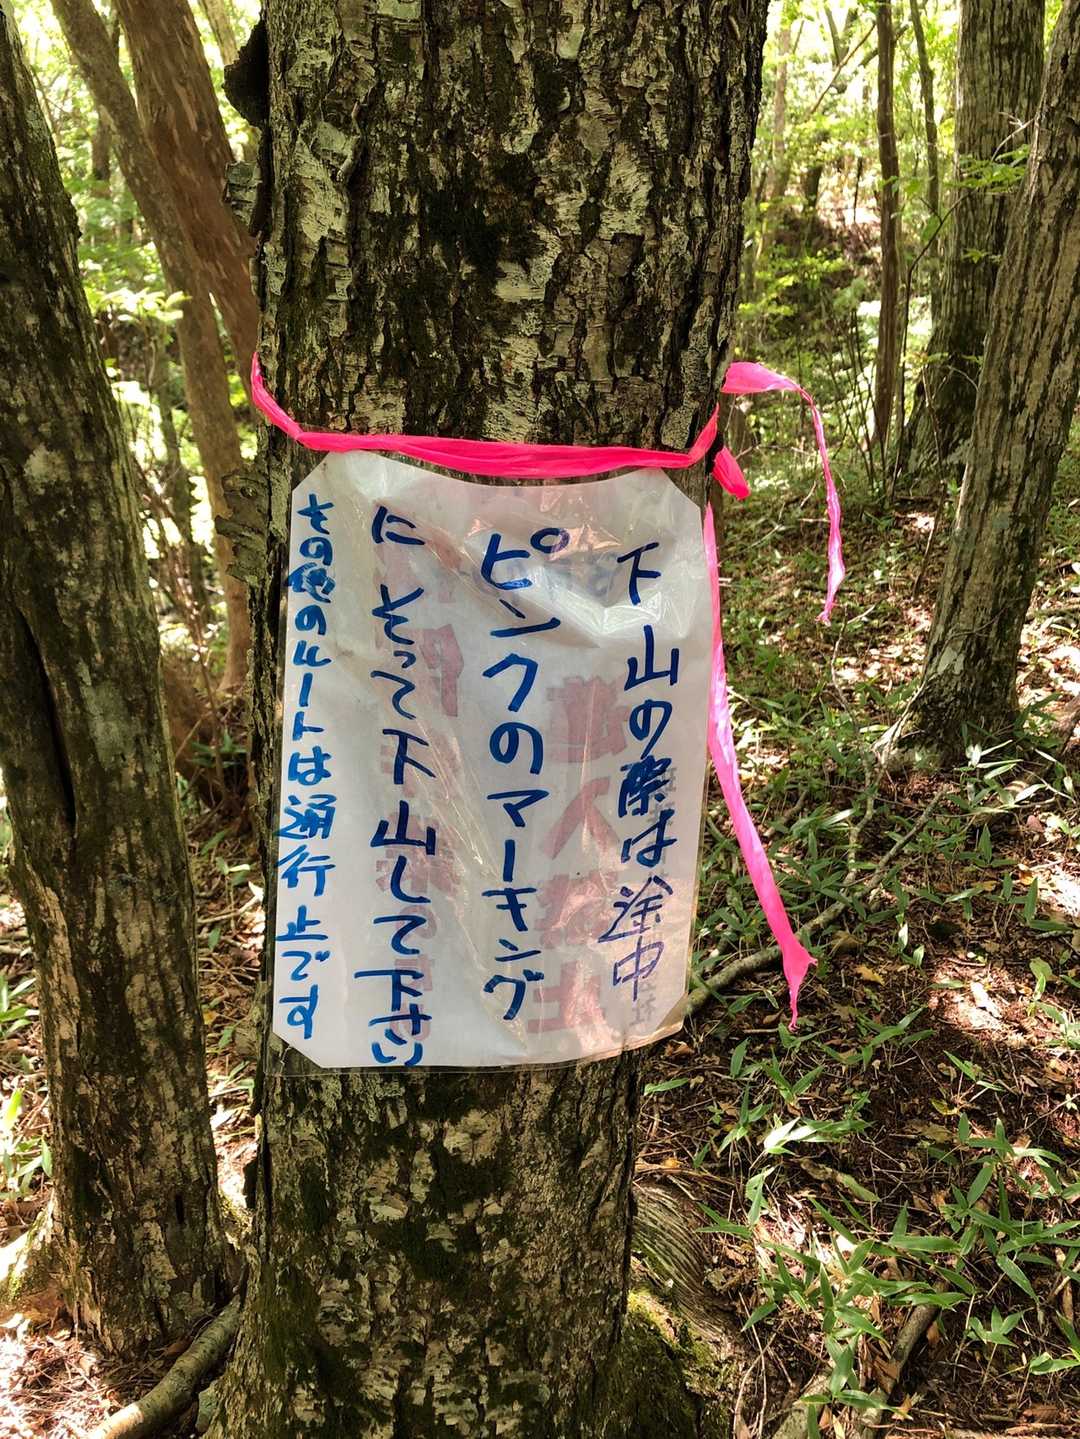 下山の際は途中
ピンクのマーキング
にそって下山して下さい
その他のルートは通行止です